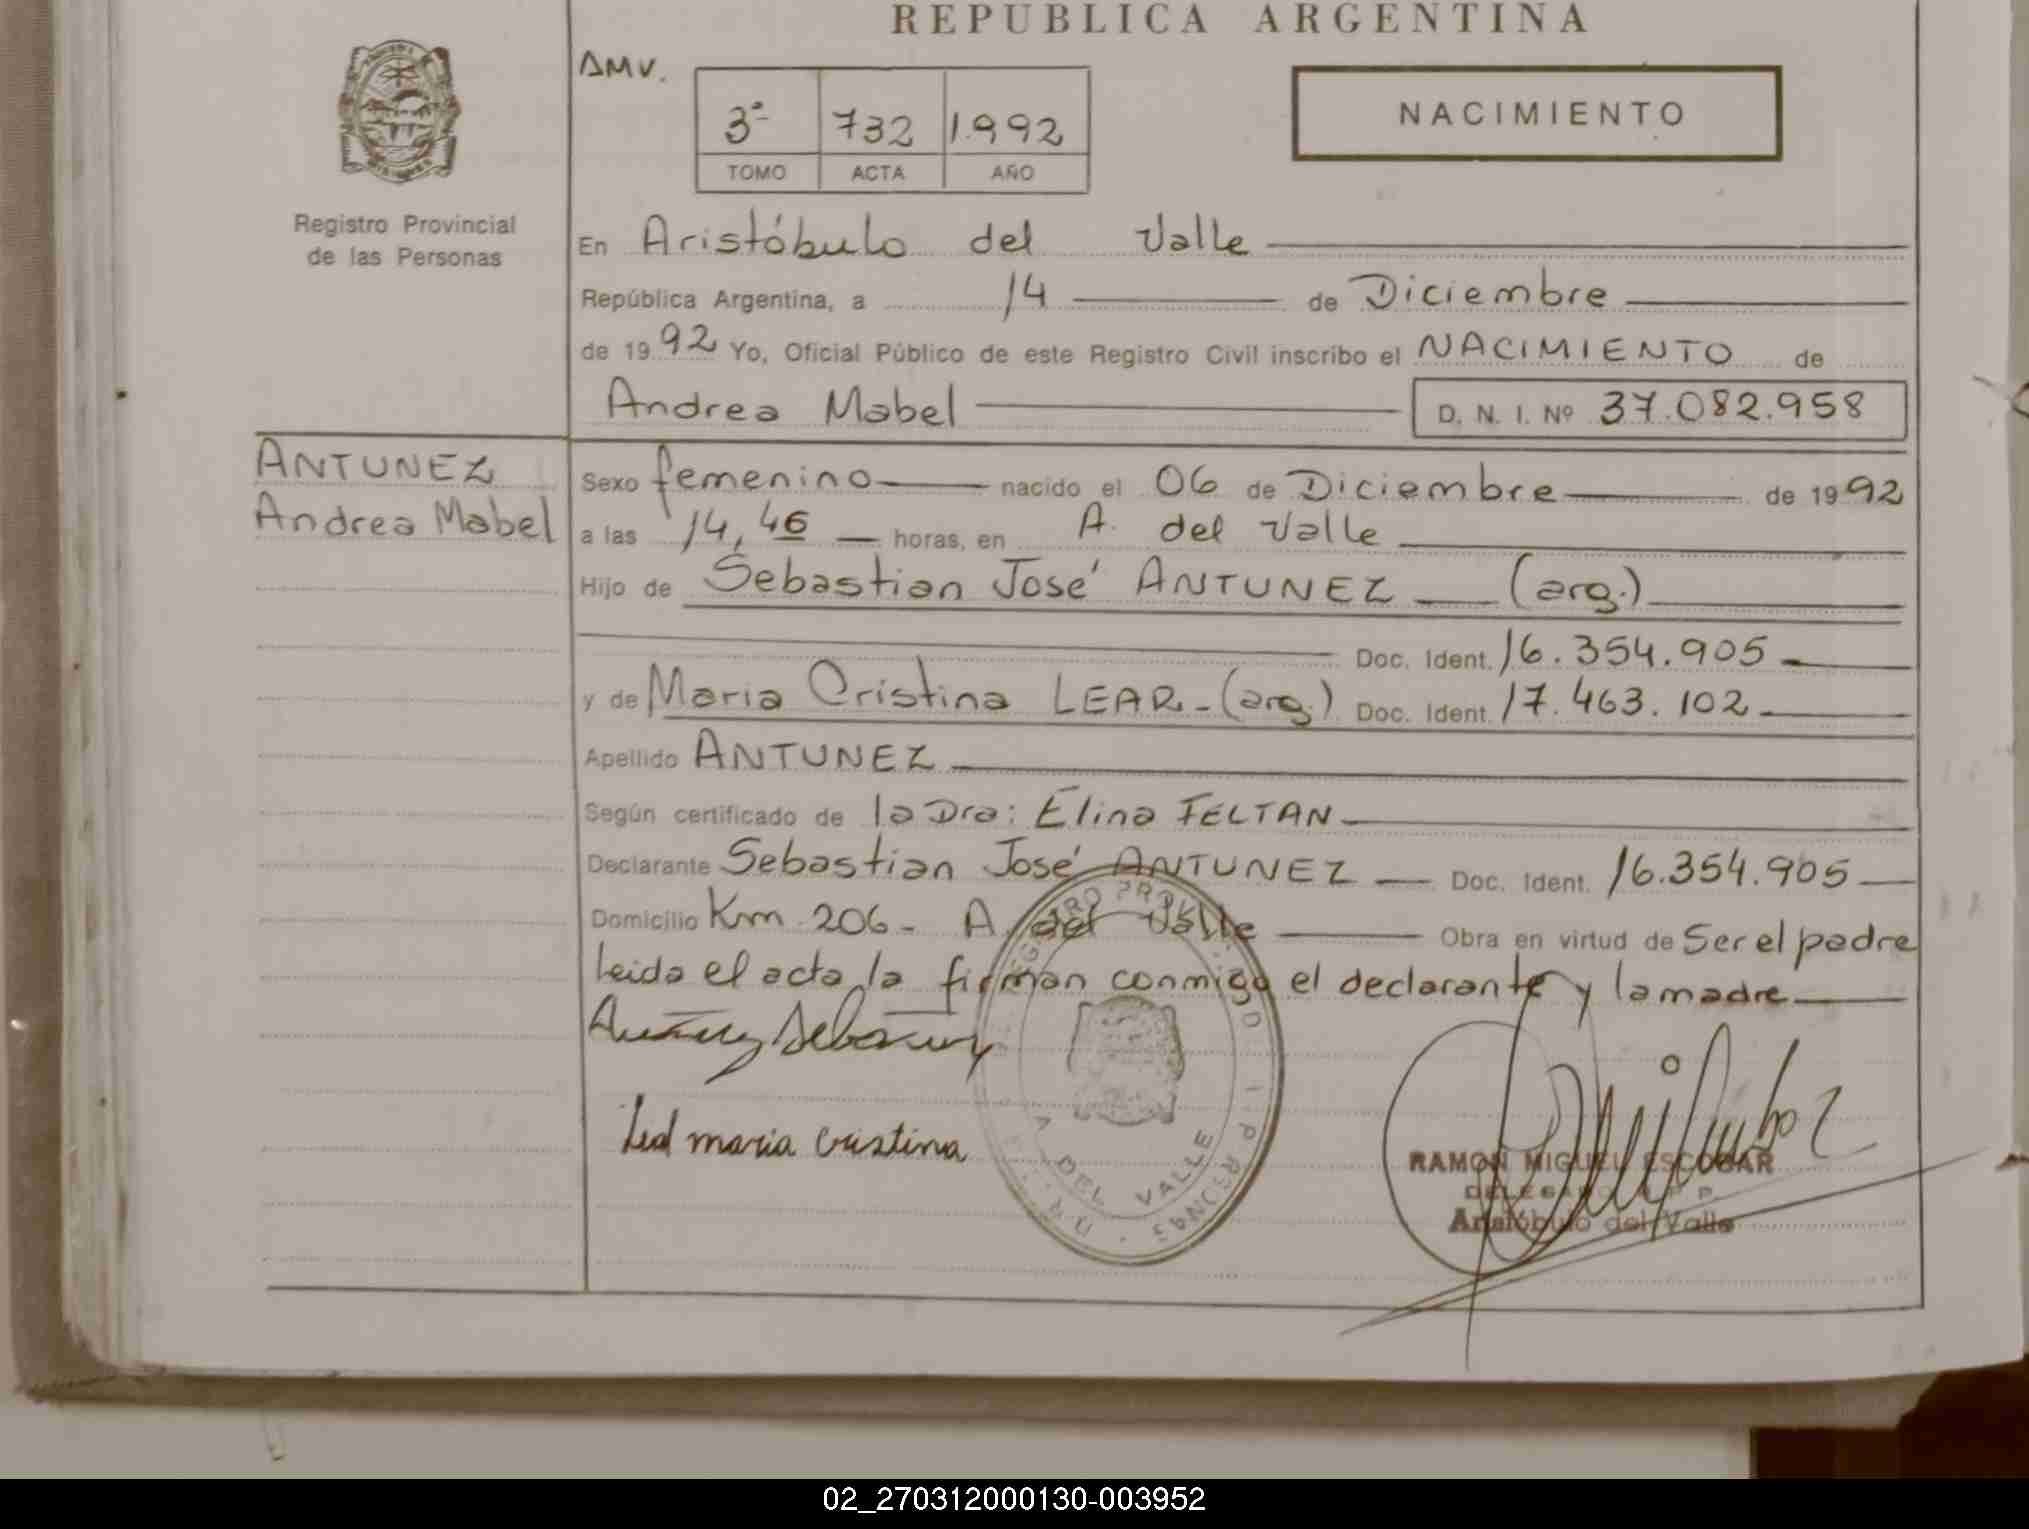 REPUBLICA ARGENTINA
AMV.
3º 732 1.992
TOMO ACTA AÑO
NACIMIENTO
Registro Provincial
de las Personas
En Aristóbulo del Valle
República Argentina, a 14 de Diciembre
de 1992 Yo, Oficial Público de este Registro Civil inscribo el NACIMIENTO de
Andrea Mabel D. N. I. Nº 37.082.958
ANTUNEZ
Andrea Mabel
Sexo femenino nacido el 06 de Diciembre de 1992
a las 14,46 horas, en A. del Valle
Hijo de Sebastian José ANTUNEZ (arg.)
Doc. Ident. 16.354.905
y de Maria Cristina LEAR-(arg.) Doc. Ident. 17.463.102
Apellido ANTUNEZ
Según certificado de la Dra: Elina FELTAN
Declarante Sebastian José ANTUNEZ Doc. Ident. 16.354.905
Domicilio Km. 206- A. del Valle Obra en virtud de Ser el padre
leida el acta la firman conmigo el declarante y la madre
maria cristina
REGISTRO PROVINCIAL
A DEL VALLE
RAMON MIGUEL ESCOBAR
DELEGADO R P P
Aristóbulo del Valle
02_270312000130-003952